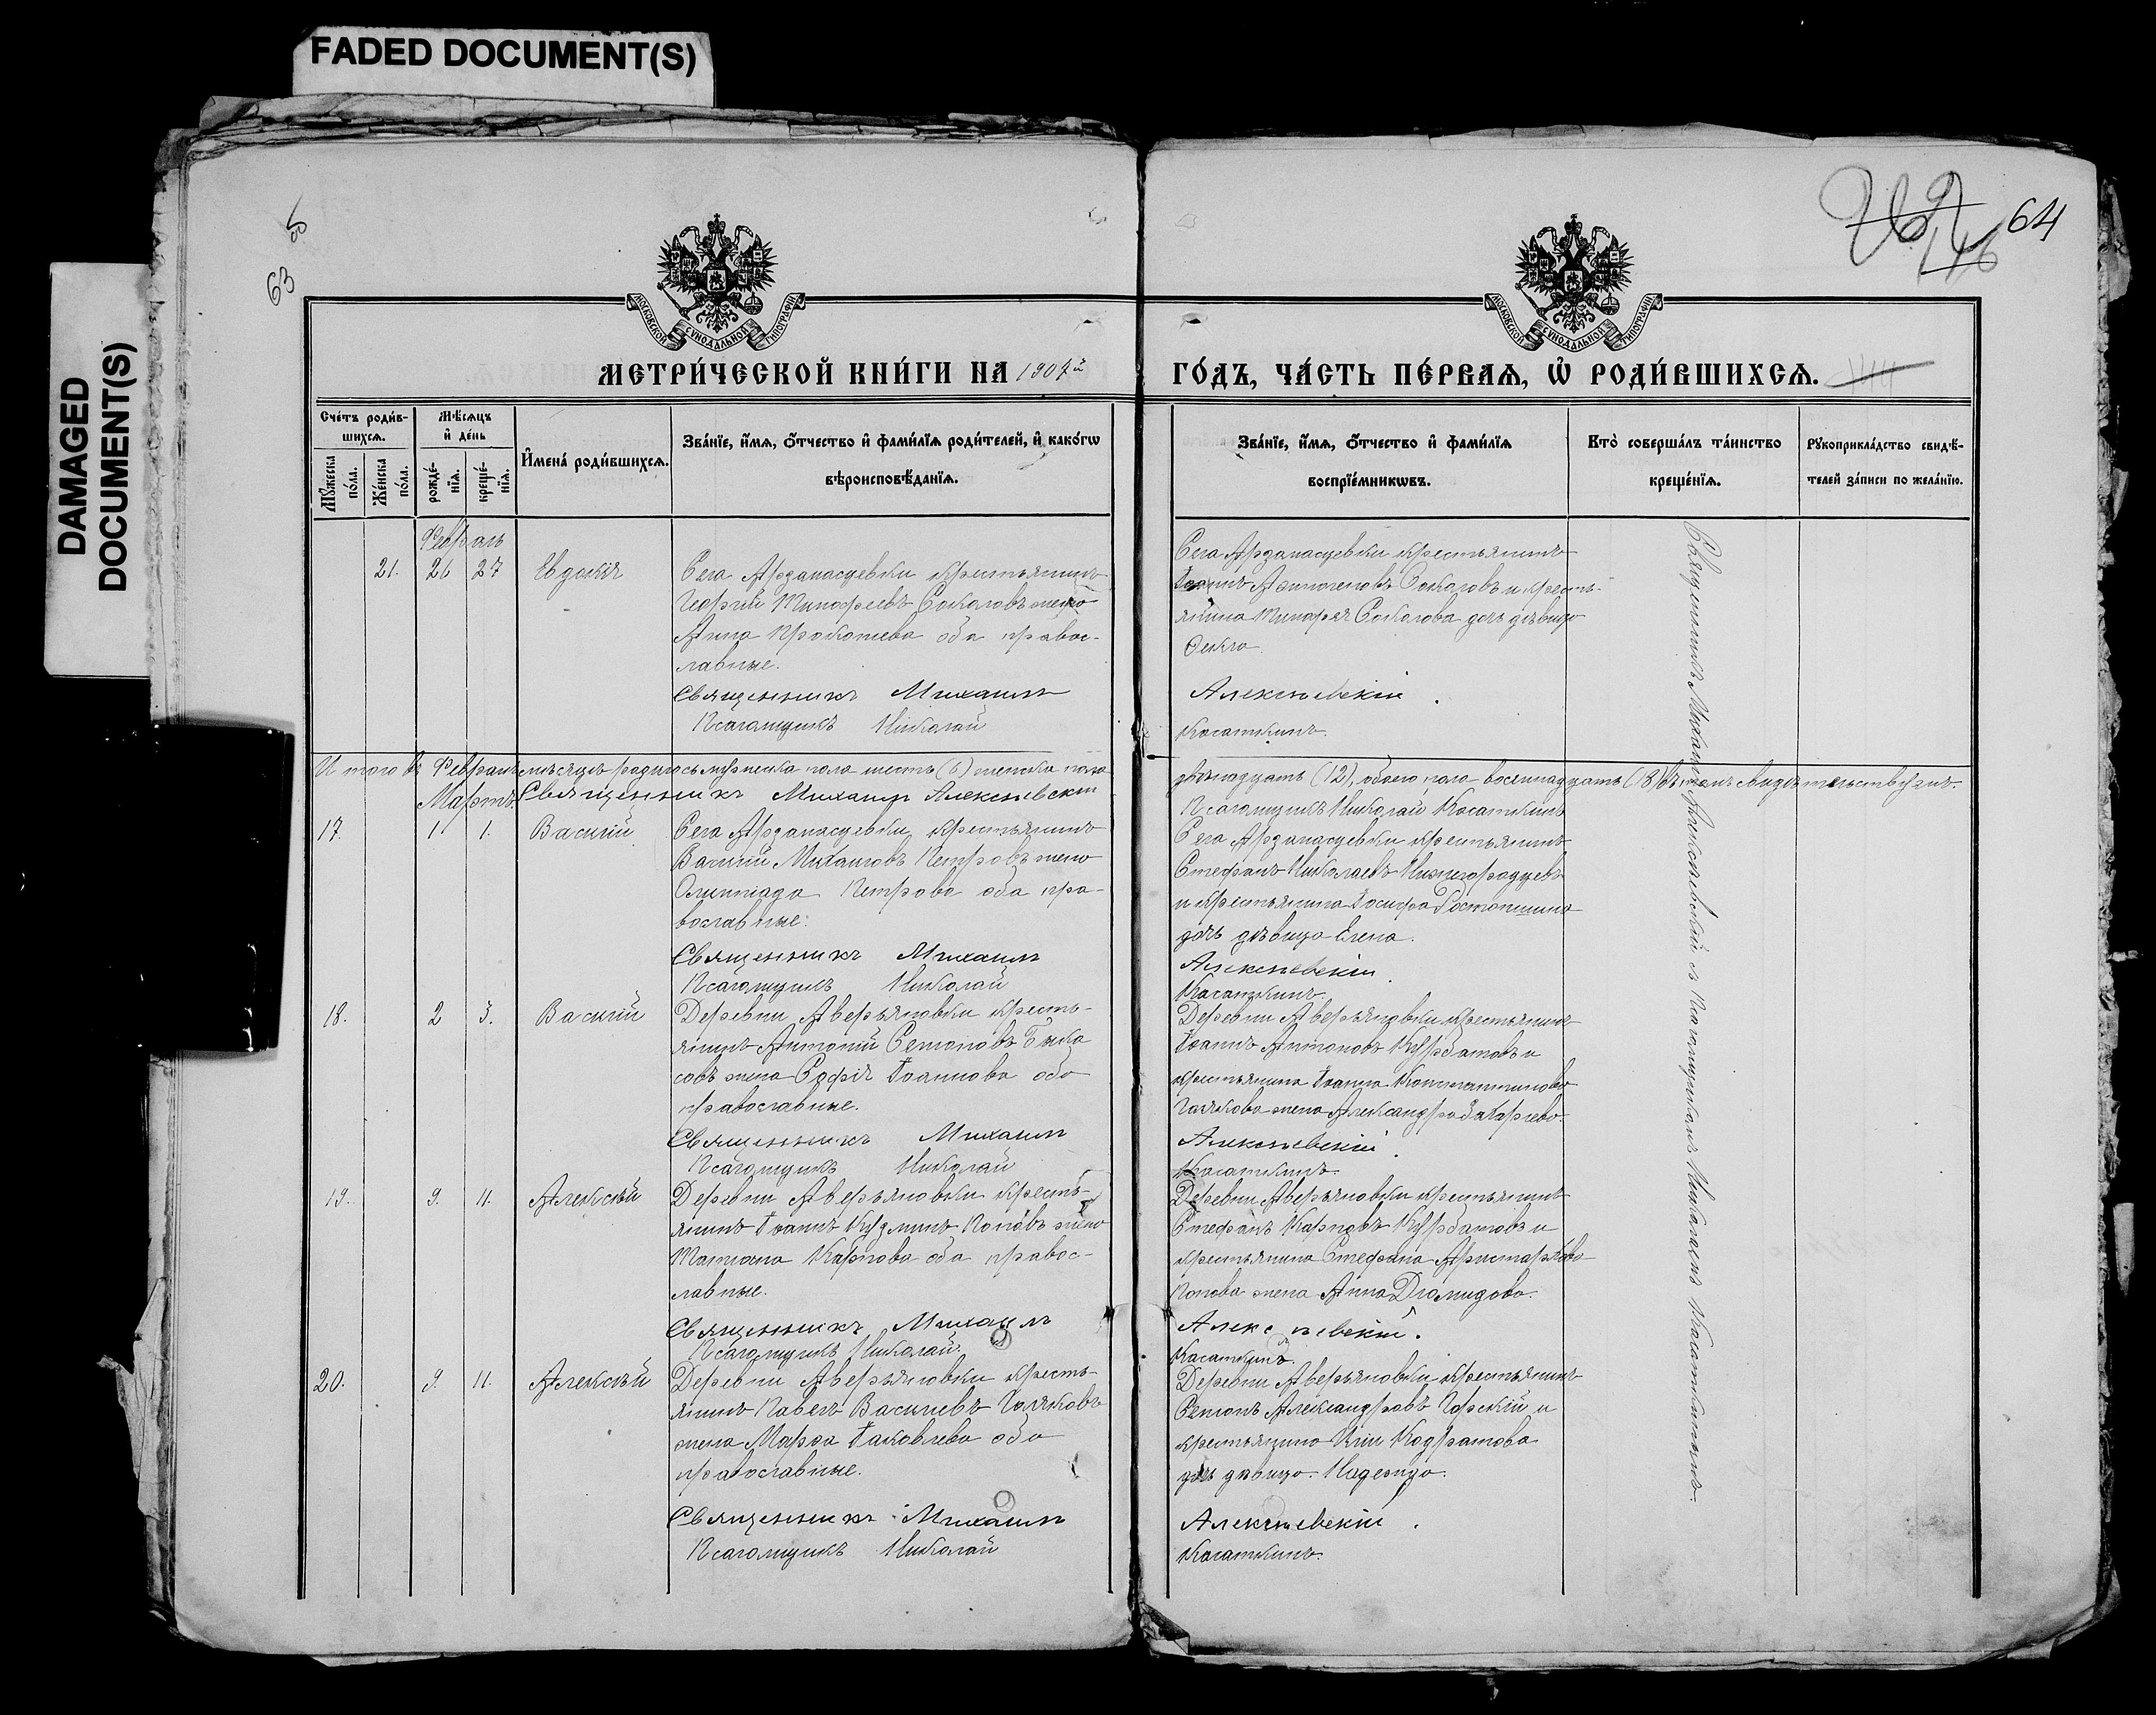 FADED DOCUMENT(S)
DAMAGED
DOCUMENT(S)
63
64
МОСКОВСКОЙ СУНОДАЛЬНОЙ ТИПОГРАФІИ
МОСКОВСКОЙ СУНОДАЛЬНОЙ ТИПОГРАФІИ
МЕТРИ́ЧЕСКОЙ КНИ́ГИ НА 1907й
ГО́ДЪ, ЧА́СТЬ ПЕ́РВАЯ, Ѡ РОДИ́ВШИХСЯ.
Сче́тъ роди́в-
шихся.
Мѣ́сяцъ
и де́нь
Мꙋ́жеска
по́ла.
Же́нска
по́ла.
рожде́-
нїя.
креще́-
нїя.
Имена̀ роди́вшихся.
Зва́нїе, и́мя, ѻ́тчество и фами́лїя роди́телей, и како́гѡ
вѣроисповѣ́данїя.
Зва́нїе, и́мя, ѻ́тчество и фами́лїя
воспрїе́мникѡвъ.
Кто̀ соверша́лъ та́инство
креще́нїя.
Рꙋкоприкла́дство свидѣ́-
телей за́писи по жела́нїю.
Февраль
21. 26 27 Евдокія
Села Арзамасцевки крестьянинъ
Георгій Тимофеевъ Соколовъ жена
Анна Прокопиева оба правос-
лавные.
Священникъ Михаилъ
Псаломщикъ Николай
Села Арзамасцевки крестьянинъ
Іоаннъ Соколовъ и кресть-
янина Тимофея Соколова дочь дѣвица
Фекла
Алексѣевскій.
Касаткинъ.
Итого въ Февралѣ мѣсяцѣ родилось мужеска пола шесть (6) женска пола
двѣнадцать (12), обоего пола восемнадцать (18) въ томъ свидѣтельствуемъ.
Мартъ Священникъ Михаилъ Алексѣевскій
Псаломщикъ Николай Касаткинъ
17. 1 1. Василій
Села Арзамасцевки крестьянинъ
Василій Михаиловъ Петровъ жена
Олимпіада Петрова оба пра-
вославные.
Священникъ Михаилъ
Псаломщикъ Николай
Села Арзамасцевки крестьянинъ
Стефанъ Николаевъ Нижегородцевъ
и крестьянина Іосифа Ростопшина
дочь дѣвица Елена.
Алексѣевскій.
Касаткинъ.
18. 2 3. Василій
Деревни Аверьяновки кресть-
янинъ Антоній Семеновъ Быка
совъ жена Софія Іоаннова оба
православные.
Священникъ Михаилъ
Псаломщикъ Николай
Деревни Аверьяновки крестьянинъ
Іоаннъ Антоновъ Курбатовъ и
крестьянина Іоанна Константинова
жена Александра Захарова.
Алексѣевскій.
Касаткинъ.
19. 9. 11. Алексѣй
Деревни Аверьяновки кресть-
янинъ Іоаннъ Кузминъ Поповъ жена
Татіана Карпова оба правос-
лавные.
Священникъ Михаилъ
Псаломщикъ Николай
Деревни Аверьяновки крестьянинъ
Стефанъ Карповъ Курбатовъ и
крестьянина Стефана Аристархова
Попова жена Анна Диомидова.
Алексѣевскій.
Касаткинъ.
20. 9. 11. Алексѣй
Деревни Аверьяновки кресть-
янинъ Павелъ Василіевъ
жена Марфа Іаковлева оба
православные.
Священникъ Михаилъ
Псаломщикъ Николай
Деревни Аверьяновки крестьянинъ
Семенъ Александровъ Горскій и
крестьянина Кодратова
дочь дѣвица Надежда.
Алексѣевскій.
Касаткинъ.
Священникъ Михаилъ Алексѣевскій съ Псаломщикомъ Николаемъ Касаткинымъ.